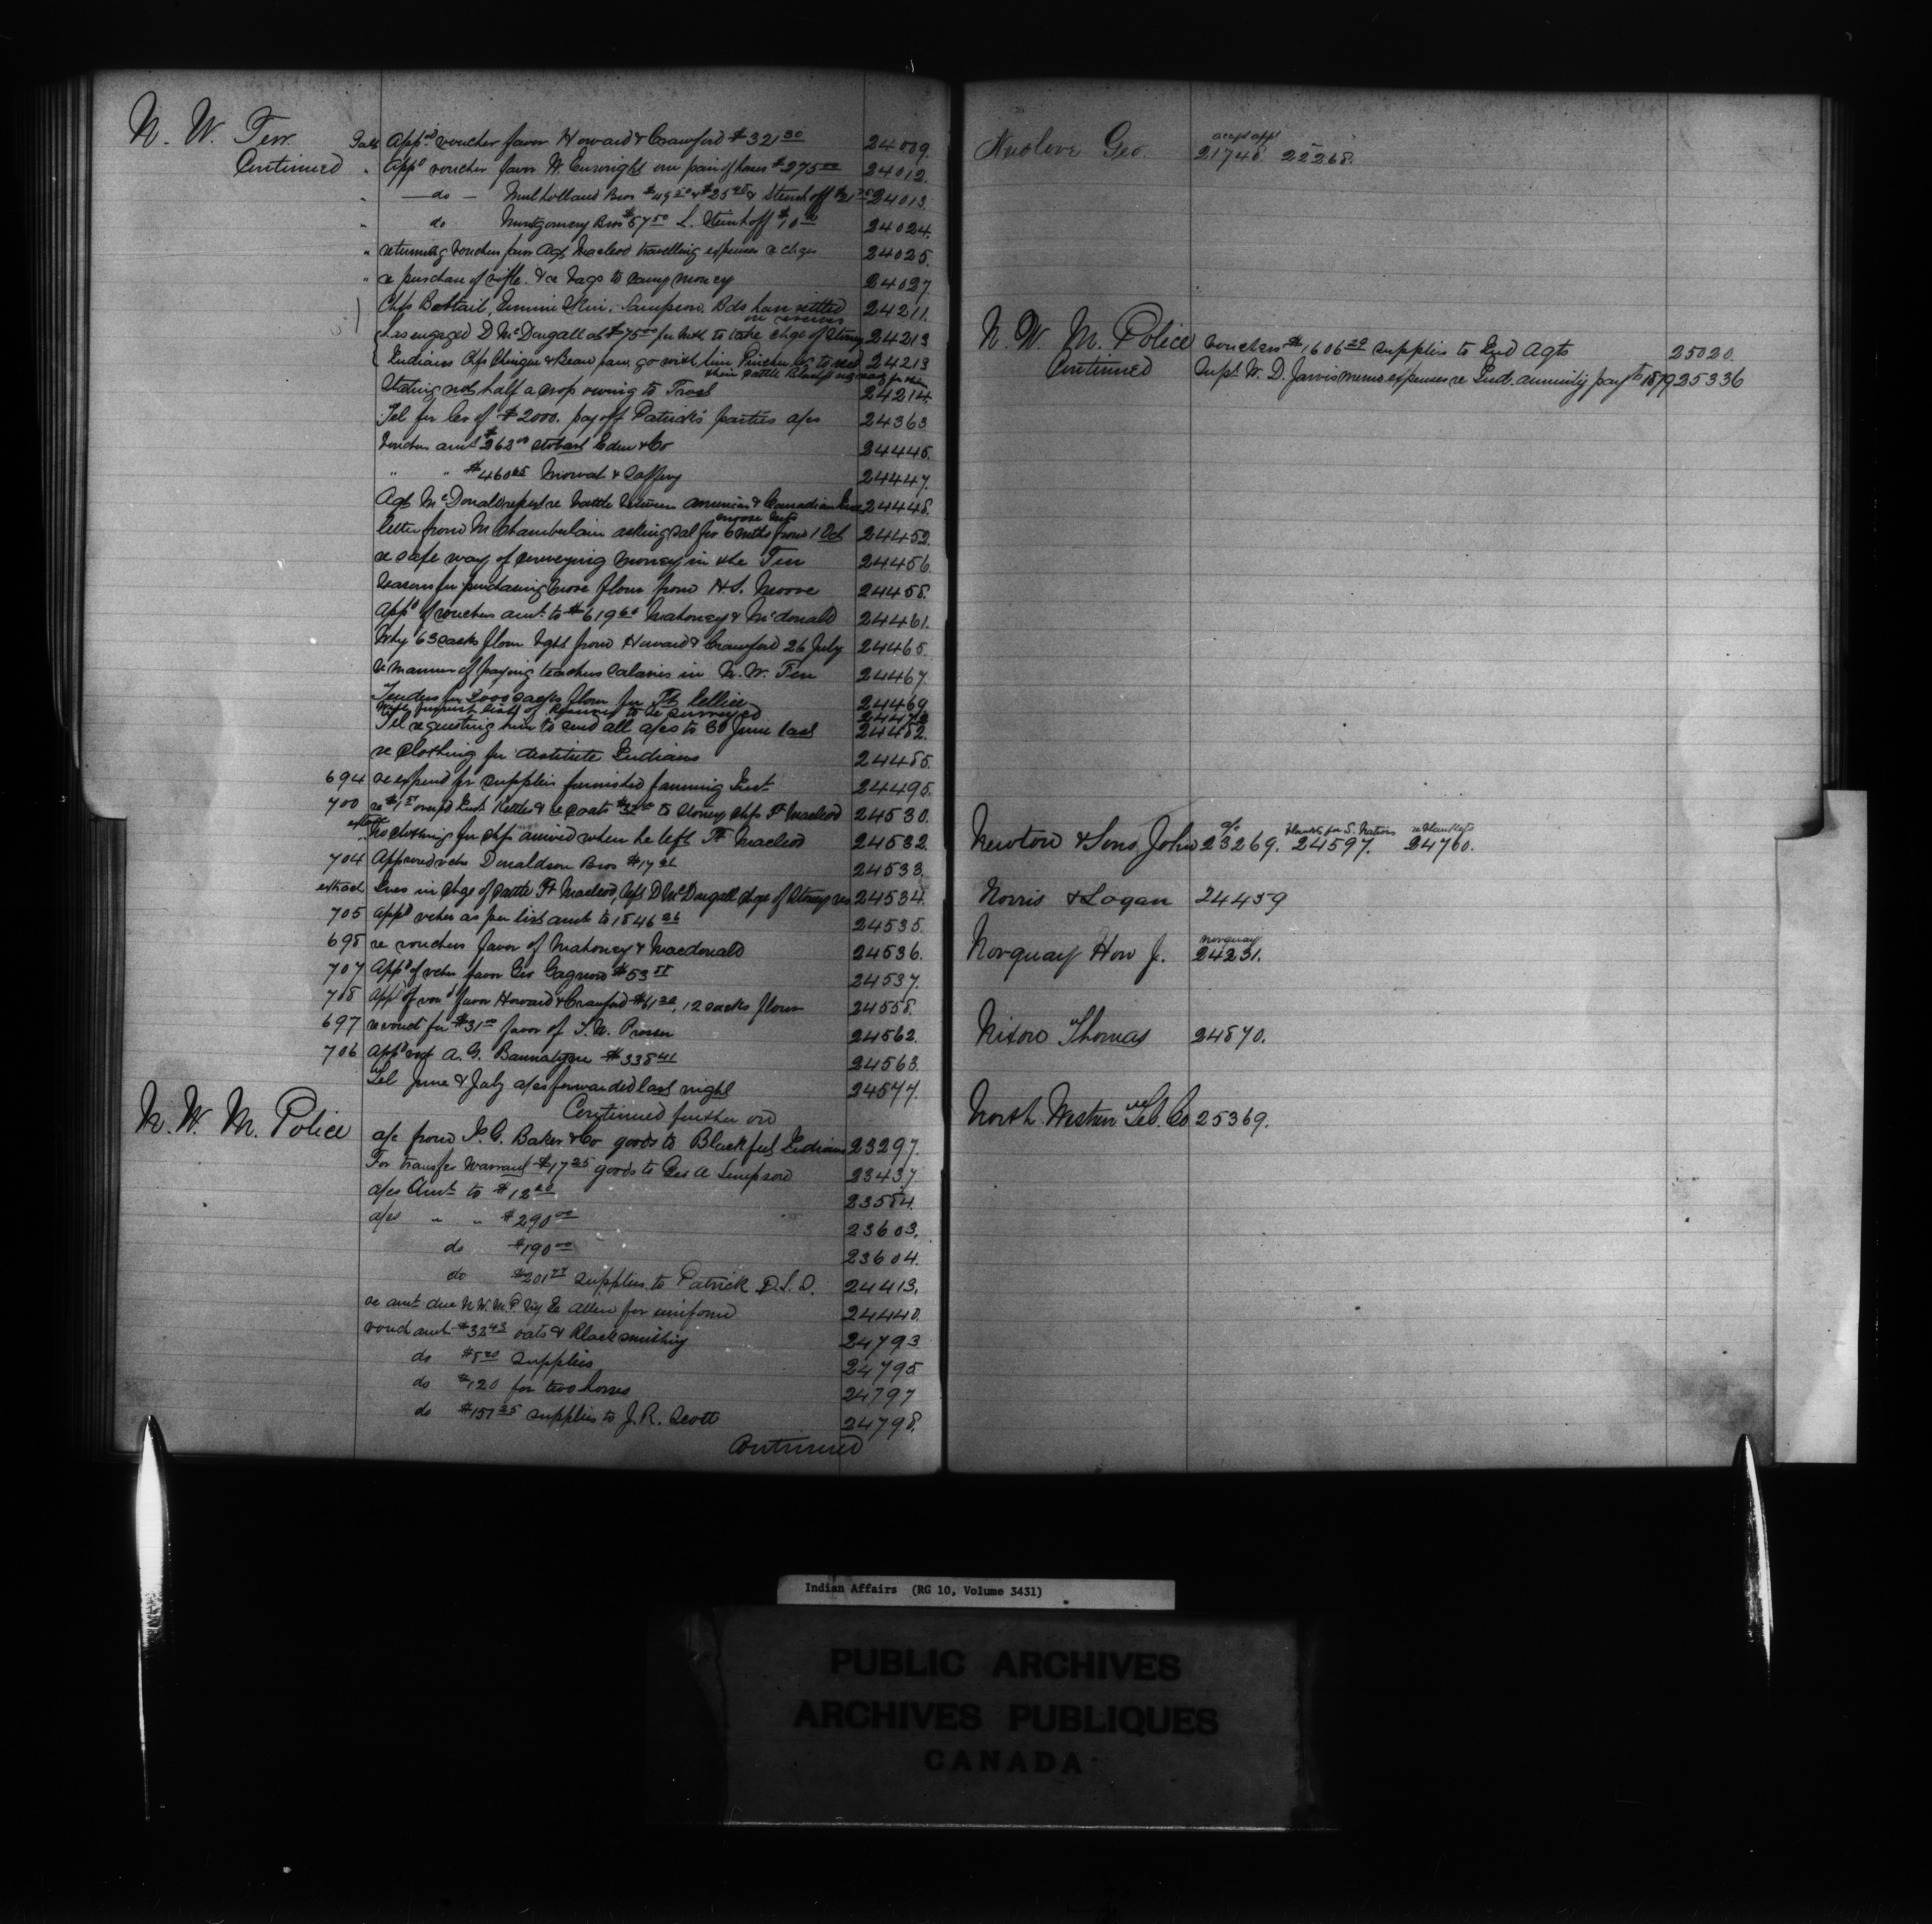 N. W. Terr
Continued
Appd voucher favor Howard & Crawford $321 30 24009.
" Appd voucher favor W. Enright one pair of horses $275 00 24012.
" — do — Mulholland Bros & Steinhoff 24013.
" do Montgomery Bros $57 50 L. Steinhoff $10 00 24024.
" returning vouchers favor Agt Macleod travelling expenses 24025.
" re purchase of rifle & re bags to carry money 24027.
Chfs Bobtail, Ermine Skin, Sampson, Bds have settled on reserves 24211.
has engaged D McDougall at $75 00 per mth to take chge of Stoney 24213
Indians Chfs Chinique & Bears paw go with him 24213
their cattle
Stating not half a crop owing to Frost 24214.
Tel for of $2000. pay off Patrick's parties a/cs 24363
vouchers amt $262 00 Stobart Eden & Co 24445.
" " $460 25 Mowat & Saffery 24447.
Agt McDonald report re battle between American & Canadian Inds 24448.
letter from M Chamberlain asking sal for 6 mths from 1 Oct 24452.
re safe way of conveying money in the Terr 24456.
Reasons for purchasing more flour from H.S. Moore 24458.
Appd of vouchers amt to $619 60 Mahoney & McDonald 24461.
Why 63 sacks flour bght from Howard & Crawford 26 July 24465.
re manner of paying teachers salaries in N. W. Terr 24467.
Tenders for 2000 sacks flour for Ft Pellice 24469
list of Reserves to be surveyed
Tel requesting him to send all a/cs to 30 June last 24482.
re clothing for destitute Indians 24485.
694 re expend for supplies furnished farming Inst. 24495.
700 Kettle & re coats to Stoney Chfs Ft Macleod 24530.
extract No clothing for chfs arrived when he left Ft Macleod 24532.
704 Approved vchr Donaldson Bros 24533.
extract Inds in chge of cattle Ft Macleod, left D McDougall chge of Stoneys 24534.
705 Appd vchrs as per list amt to 1846 24535.
698 re vouchers favor of Mahoney & Macdonald 24536.
707 Appd of vchr favor Geo Gagnon $53 24537.
708 Appd of vou favor Howard & Crawford 12 sacks flour 24558.
697 re vouch for $31 00 favor of 24562.
706 Appd A. G. Bannatyne $338 41 24563.
Tel June & July a/cs forwarded last night 24577.
Continued further on
N. W. M. Police
a/c from I. G. Baker & Co goods to Blackfeet Indians 23297.
For transfer Warrant $17 25 goods to Geo A Simpson 23437.
a/cs Amt to $12 20 23584.
a/cs " " $290 00 23603.
do $190 00 23604.
do $201 supplies to Patrick D.L.S. 24413.
re amt due N.W.M.P. for uniform 24440.
vouch amt $32 43 oats & Blacksmithing 24793
do supplies 24795
do $120 for two horses 24797
do $157 25 supplies to J. R. Scott 24798.
Continued
Nuslove Geo. 21746 22268.
N. W. M. Police vouchers $1606 29 supplies to Ind Agts 25020.
Continued Supt W. D. Jarvis memo expenses re Ind. annuity payts 1879 25336
a/c Blankets for S. Nations re Blankets
Newton & Sons John 23269. 24597. 24760.
Norris & Logan 24459
Norquay
Norquay Hon J. 24231.
Nixon Thomas 24870.
North Western Tel. Co 25369.
Indian Affairs (RG 10, Volume 3431)
PUBLIC ARCHIVES
ARCHIVES PUBLIQUES
CANADA